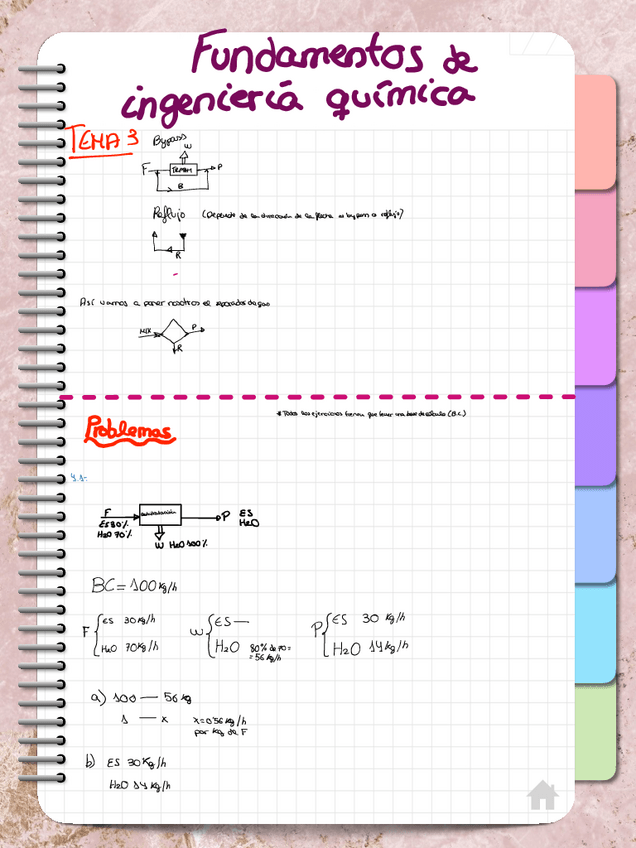 Fundamentos de
ingeniería química
TEMA 3
Bypass
W
F P
B
Reflujo (Depende de la dirección de la flecha es bypass o reflujo)
R
Así vamos a poner nosotros el separador de gas
MIX P
R
* Todos los ejercicios tienen que tener una base de cálculo (B.C.)
Problemas
F P ES
ES 30% H2O
H2O 70%
W H2O 100%
BC = 100 kg/h
F ES 30 kg/h W ES — P ES 30 kg/h
H2O 70 kg/h H2O 80% de 70 = H2O 14 kg/h
= 56 kg/h
a) 100 — 56 kg
1 — x x = 0'56 kg/h
por kg de F
b) ES 30 kg/h
H2O 14 kg/h